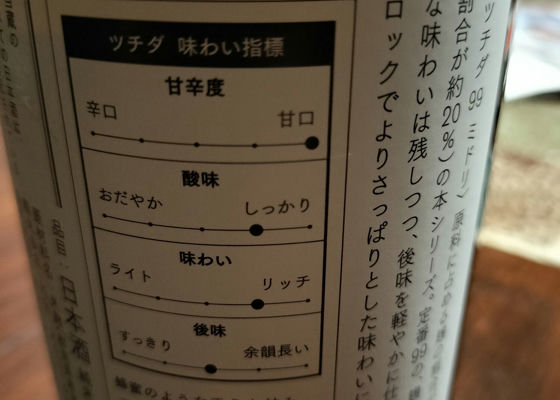 ツチダ 味わい指標
甘辛度
辛口 甘口
酸味
おだやか しっかり
味わい
ライト リッチ
後味
すっきり 余韻長い
蜂蜜のような
ツチダ 99 ミドリ）原料に占める麹の
割合が約20%）の本シリーズ。定番99の、
な味わいは残しつつ、後味を軽やかに仕
ロックでよりさっぱりとした味わいに
品目：日本酒